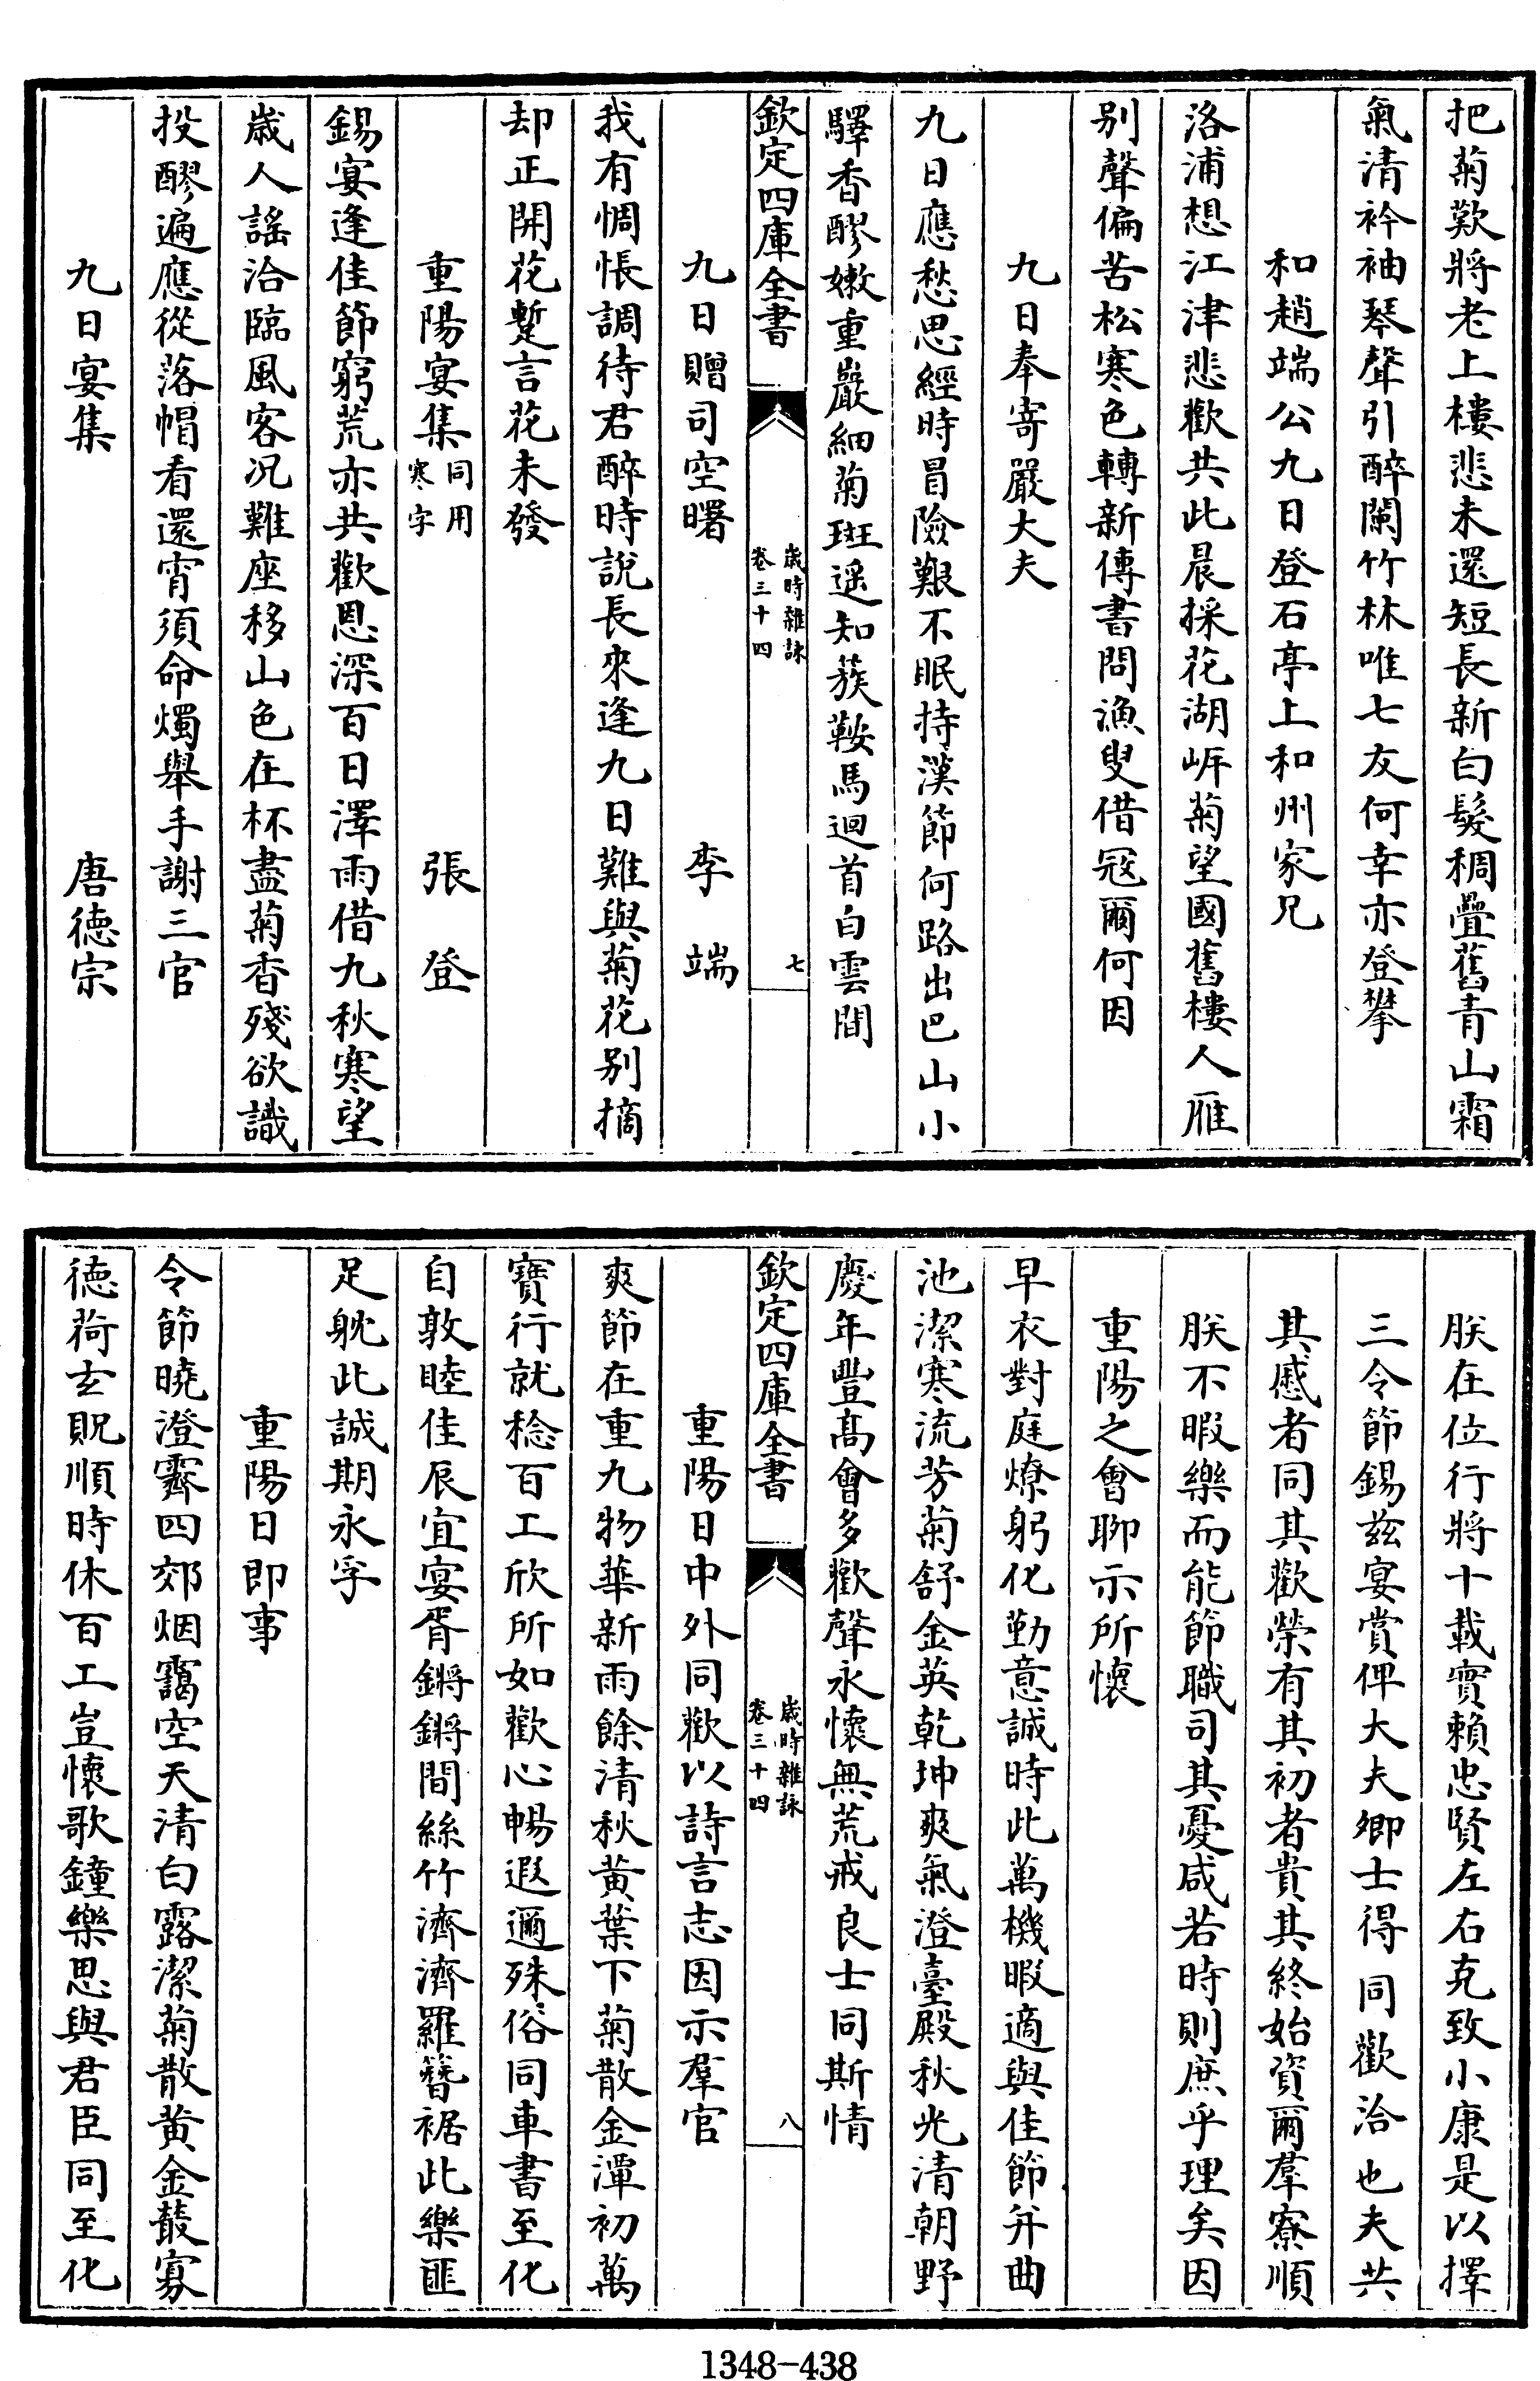 把菊歎將老上樓悲未還短長新白髮稠疊舊青山霜
氣清衿袖琴聲引醉闌竹林唯七友何幸亦登攀
和趙端公九日登石亭上和州家兄
洛浦想江津悲歡共此晨採花湖岸菊望國舊樓人雁
別聲偏苦松寒色轉新傳書問漁叟借冦爾何因
九日奉寄嚴大夫
九日應愁思經時冒險艱不眠持漢節何路出巴山小
驛香醪嫩重巖細菊斑遥知蔟鞍馬迴首白雲間
欽定四庫全書
歲時雜詠
卷三十四
七
九日贈司空曙 李端
我有惆悵調待君醉時説長來逢九日難與菊花別摘
却正開花蹔言花未發
重陽宴集同用寒字 張登
錫宴逢佳節窮荒亦共歡恩深百日澤雨借九秋寒望
歲人謠洽臨風客况難座移山色在杯盡菊香殘欲識
投醪遍應從落帽看還宵須命燭舉手謝三官
九日宴集 唐德宗
朕在位行將十載實賴忠賢左右克致小康是以擇
三令節錫兹宴賞俾大夫卿士得同歡洽也夫共
其慼者同其歡榮有其初者貴其終始資爾羣寮順
朕不暇樂而能節職司其憂咸若時則庶乎理矣因
重陽之會聊示所懷
早衣對庭燎躬化勤意誠時此萬機暇適與佳節并曲
池潔寒流芳菊舒金英乾坤爽氣澄臺殿秋光清朝野
慶年豐髙會多歡聲永懷無荒戒良士同斯情
欽定四庫全書
歲時雜詠
卷三十四
八
重陽日中外同歡以詩言志因示羣官
爽節在重九物華新雨餘清秋黄葉下菊散金潭初萬
寶行就稔百工欣所如歡心暢遐邇殊俗同車書至化
自敦睦佳辰宜宴胥鏘鏘間絲竹濟濟羅簪裾此樂匪
足躭此誠期永孚
重陽日即事
令節曉澄霽四郊烟靄空天清白露潔菊散黄金叢寡
德荷玄貺順時休百工豈懷歌鐘樂思與君臣同至化
1348-438